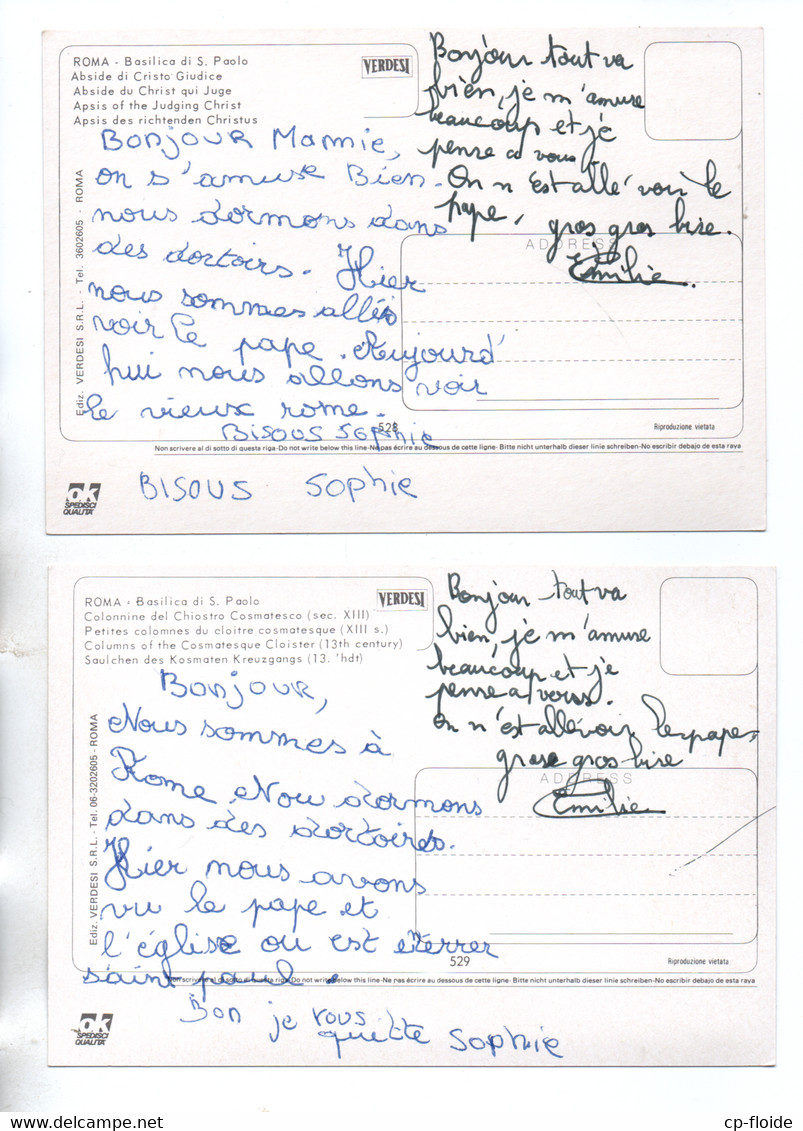 ROMA - Basilica di S. Paolo
Abside di Cristo Giudice
Abside du Christ qui Juge
Apsis of the Judging Christ
Apsis des richtenden Christus
VERDESI
Bonjour Mamie,
on s'amuse Bien.
nous dormons dans
des dortoirs. Hier
nous sommes allés
voir le pape. Aujourd'
hui nous allons voir
le vieux rome.
Bisous Sophie
BISOUS Sophie
Bonjour tout va
bien, je m'amuse
beaucoup et je
pense a vous
On n'est allé voir le
pape, gros gros bise.
Emilie.
ADDRESS
Ediz. VERDESI S.R.L. - Tel. 3602605 - ROMA
528
Riproduzione vietata
Non scrivere al di sotto di questa riga-Do not write below this line-Ne pas écrire au dessous de cette ligne- Bitte nicht unterhalb dieser linie schreiben-No escribir debajo de esta raya
ok
SPEDISCI
QUALITA'
ROMA - Basilica di S. Paolo
Colonnine del Chiostro Cosmatesco (sec. XIII)
Petites colomnes du cloitre cosmatesque (XIII s.)
Columns of the Cosmatesque Cloister (13th century)
Saulchen des Kosmaten Kreuzgangs (13. 'hdt)
VERDESI
Bonjour,
Nous sommes à
Rome. Nou dormons
dans des dortoires.
Hier nous avons
vu le pape et
l'église ou est enterrer
saint paul.
Bon je vous
quitte Sophie
Bonjour tout va
bien, je m'amuse
beaucoup et je
pense a vous.
On n'est allé voir le pape,
grose gros bise
Emilie
ADDRESS
Ediz. VERDESI S.R.L. - Tel. 06-3202605 - ROMA
529
Riproduzione vietata
Non scrivere al di sotto di questa riga-Do not write below this line-Ne pas écrire au dessous de cette ligne- Bitte nicht unterhalb dieser linie schreiben-No escribir debajo de esta raya
ok
SPEDISCI
QUALITA'
cp-floide